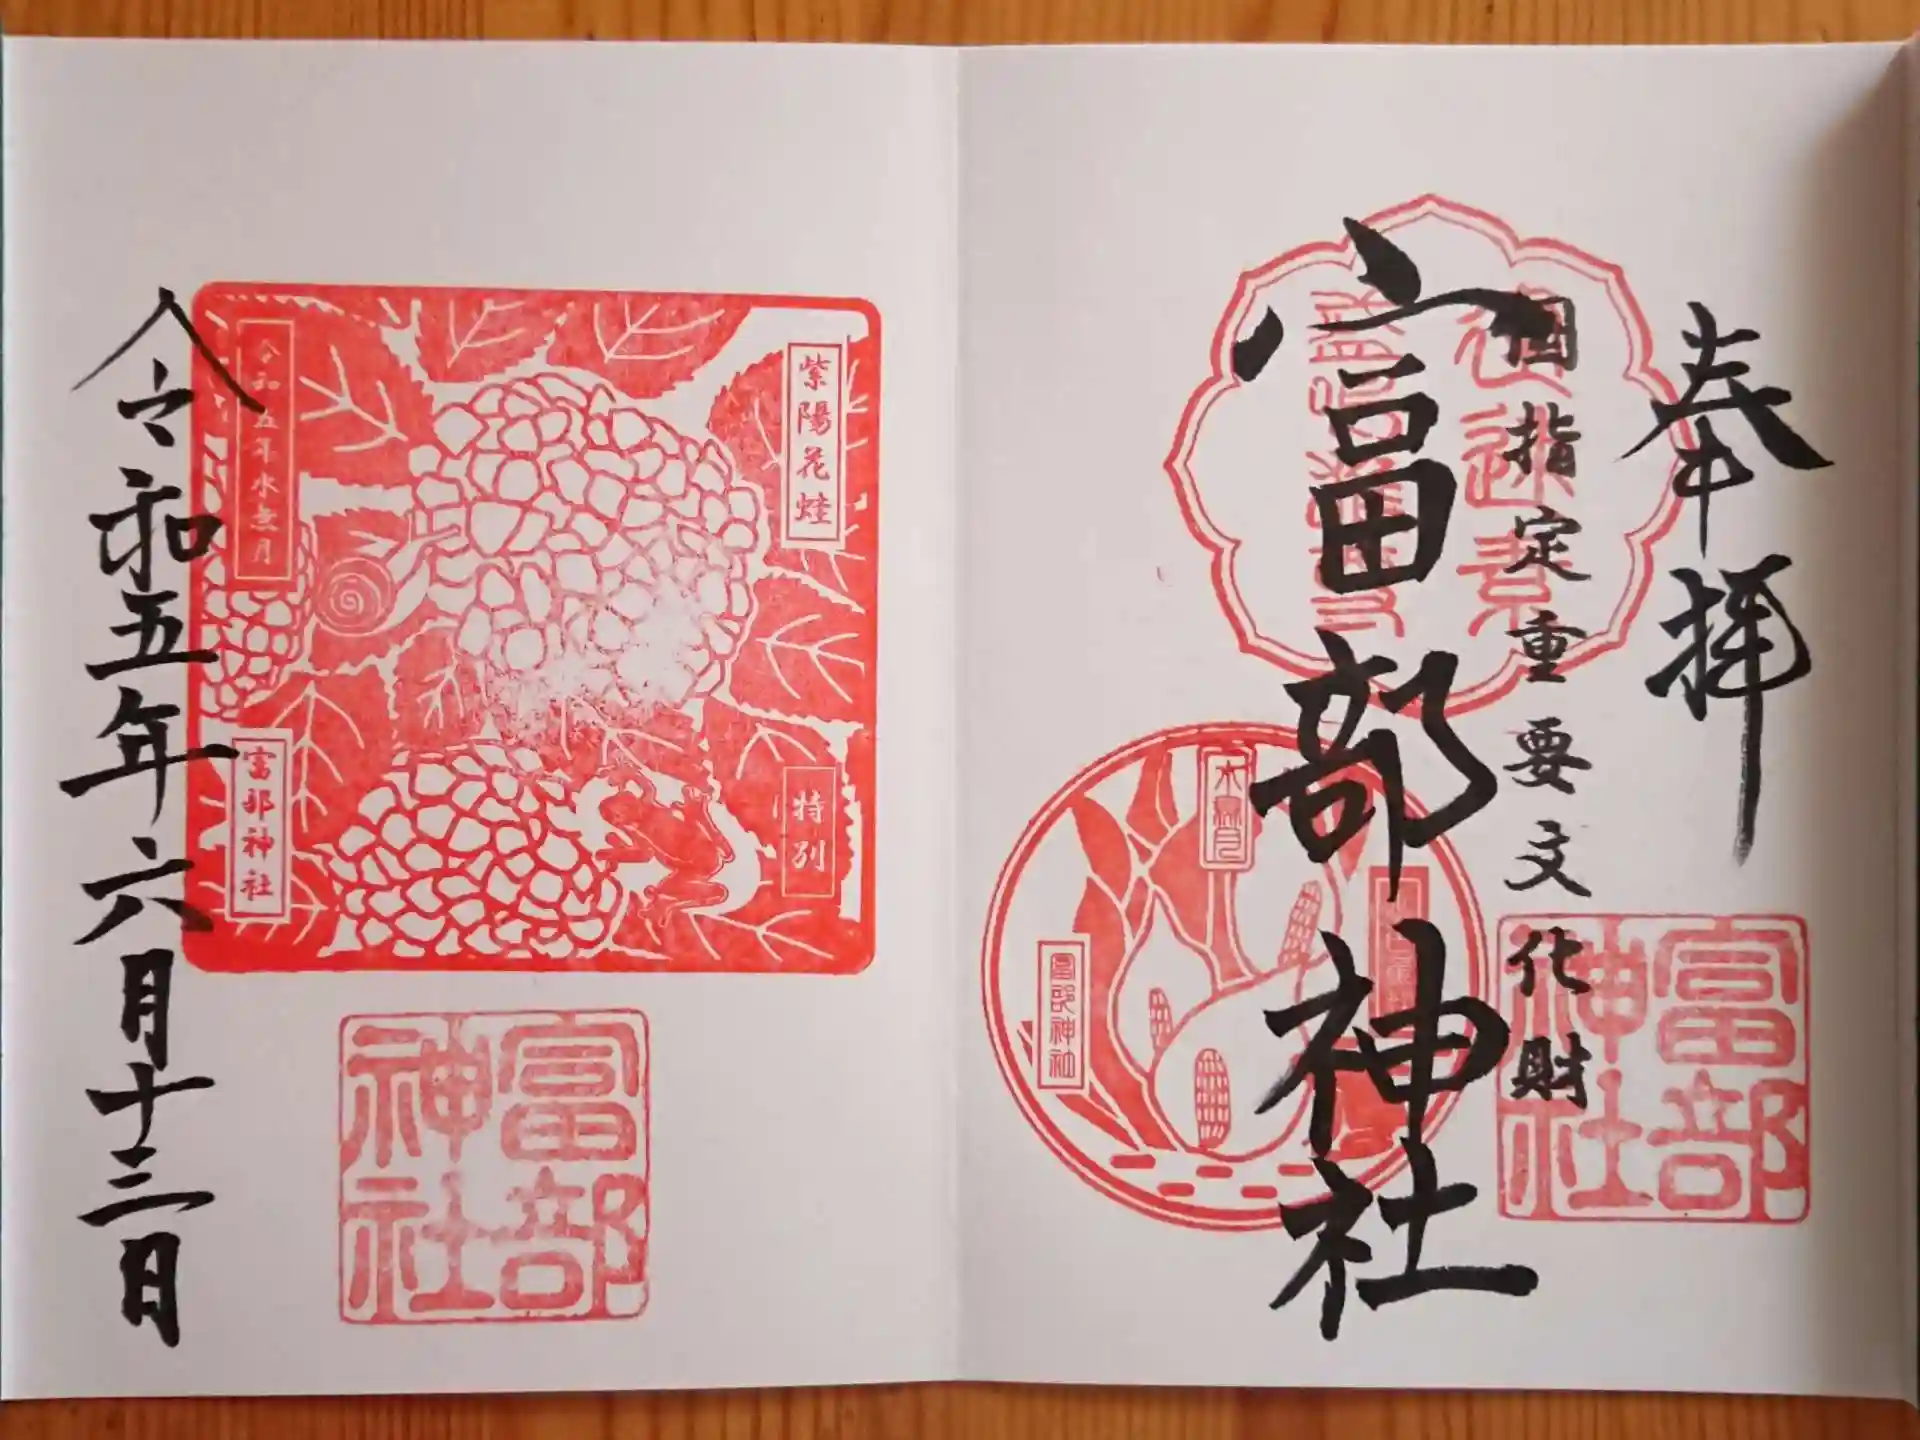 奉拝
国指定重要文化財
富部神社
富部神社
水無月
富部神社
紫陽花蛙
特別
令和五年水無月
富部神社
富部神社
令和五年六月十三日